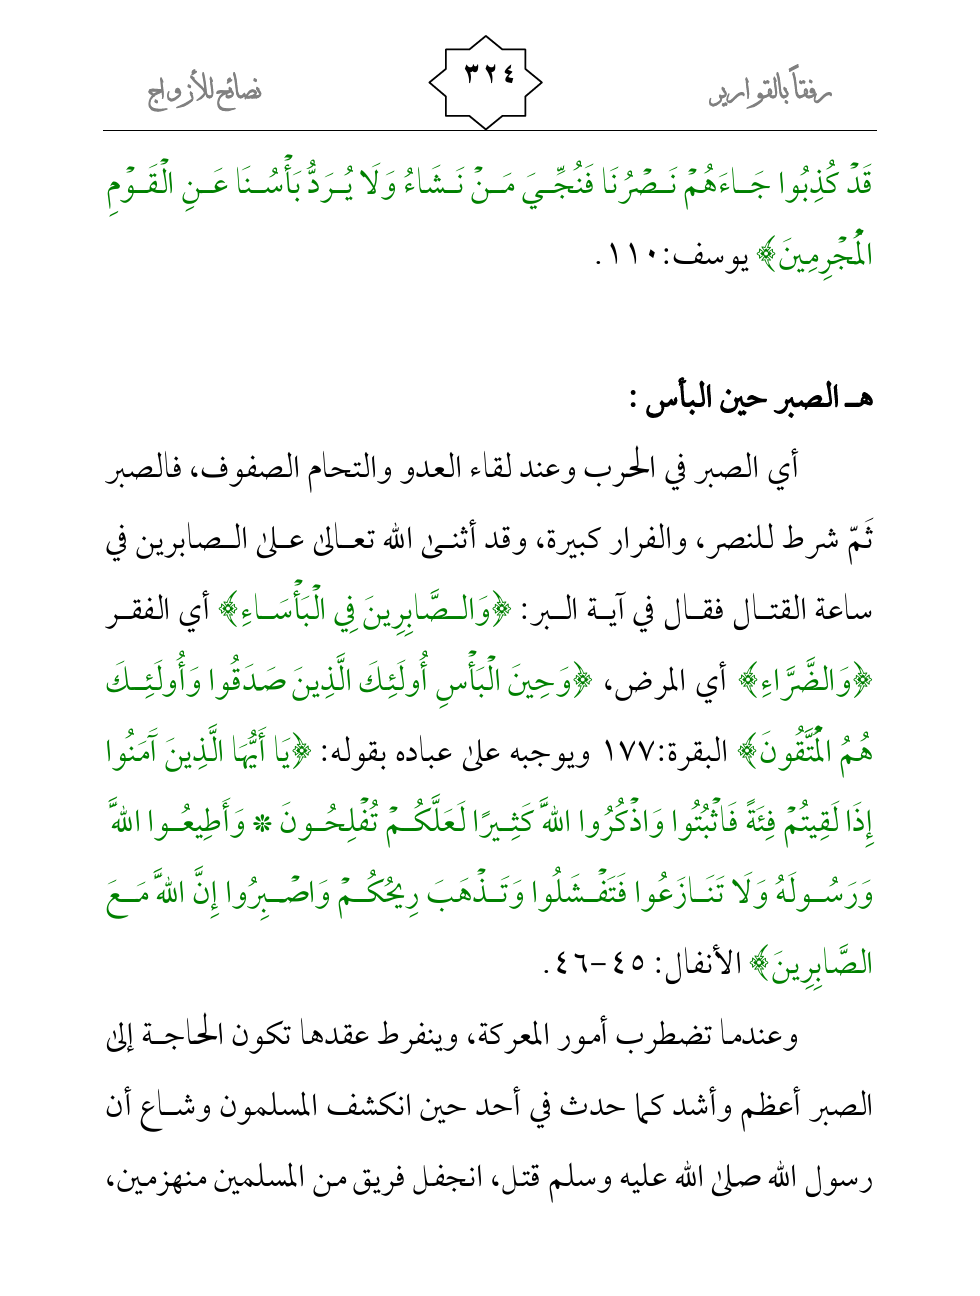 رفقاً بالقوارير
٣٢٤
نصائح للأزواج
قَدْ كُذِبُوا جَاءَهُمْ نَصْرُنَا فَنُجِّيَ مَنْ نَشَاءُ وَلَا يُرَدُّ بَأْسُنَا عَنِ الْقَوْمِ
الْمُجْرِمِينَ﴾ يوسف:١١٠.
هـ الصبر حين البأس :
أي الصبر في الحرب وعند لقاء العدو والتحام الصفوف، فالصبر
ثَمّ شرط للنصر، والفرار كبيرة، وقد أثنىٰ الله تعالىٰ علىٰ الصابرين في
ساعة القتال فقال في آية البر: ﴿وَالصَّابِرِينَ فِي الْبَأْسَاءِ﴾ أي الفقر
﴿وَالضَّرَّاءِ﴾ أي المرض، ﴿وَحِينَ الْبَأْسِ أُولَئِكَ الَّذِينَ صَدَقُوا وَأُولَئِكَ
هُمُ الْمُتَّقُونَ﴾ البقرة:١٧٧ ويوجبه علىٰ عباده بقوله: ﴿يَا أَيُّهَا الَّذِينَ آَمَنُوا
إِذَا لَقِيتُمْ فِئَةً فَاثْبُتُوا وَاذْكُرُوا اللهَّ كَثِيرًا لَعَلَّكُمْ تُفْلِحُونَ * وَأَطِيعُوا اللهَّ
وَرَسُولَهُ وَلَا تَنَازَعُوا فَتَفْشَلُوا وَتَذْهَبَ رِيحُكُمْ وَاصْبِرُوا إِنَّ اللهَّ مَعَ
الصَّابِرِينَ﴾ الأنفال: ٤٥-٤٦.
وعندما تضطرب أمور المعركة، وينفرط عقدها تكون الحاجة إلىٰ
الصبر أعظم وأشد كما حدث في أحد حين انكشف المسلمون وشاع أن
رسول الله صلىٰ الله عليه وسلم قتل، انجفل فريق من المسلمين منهزمين،